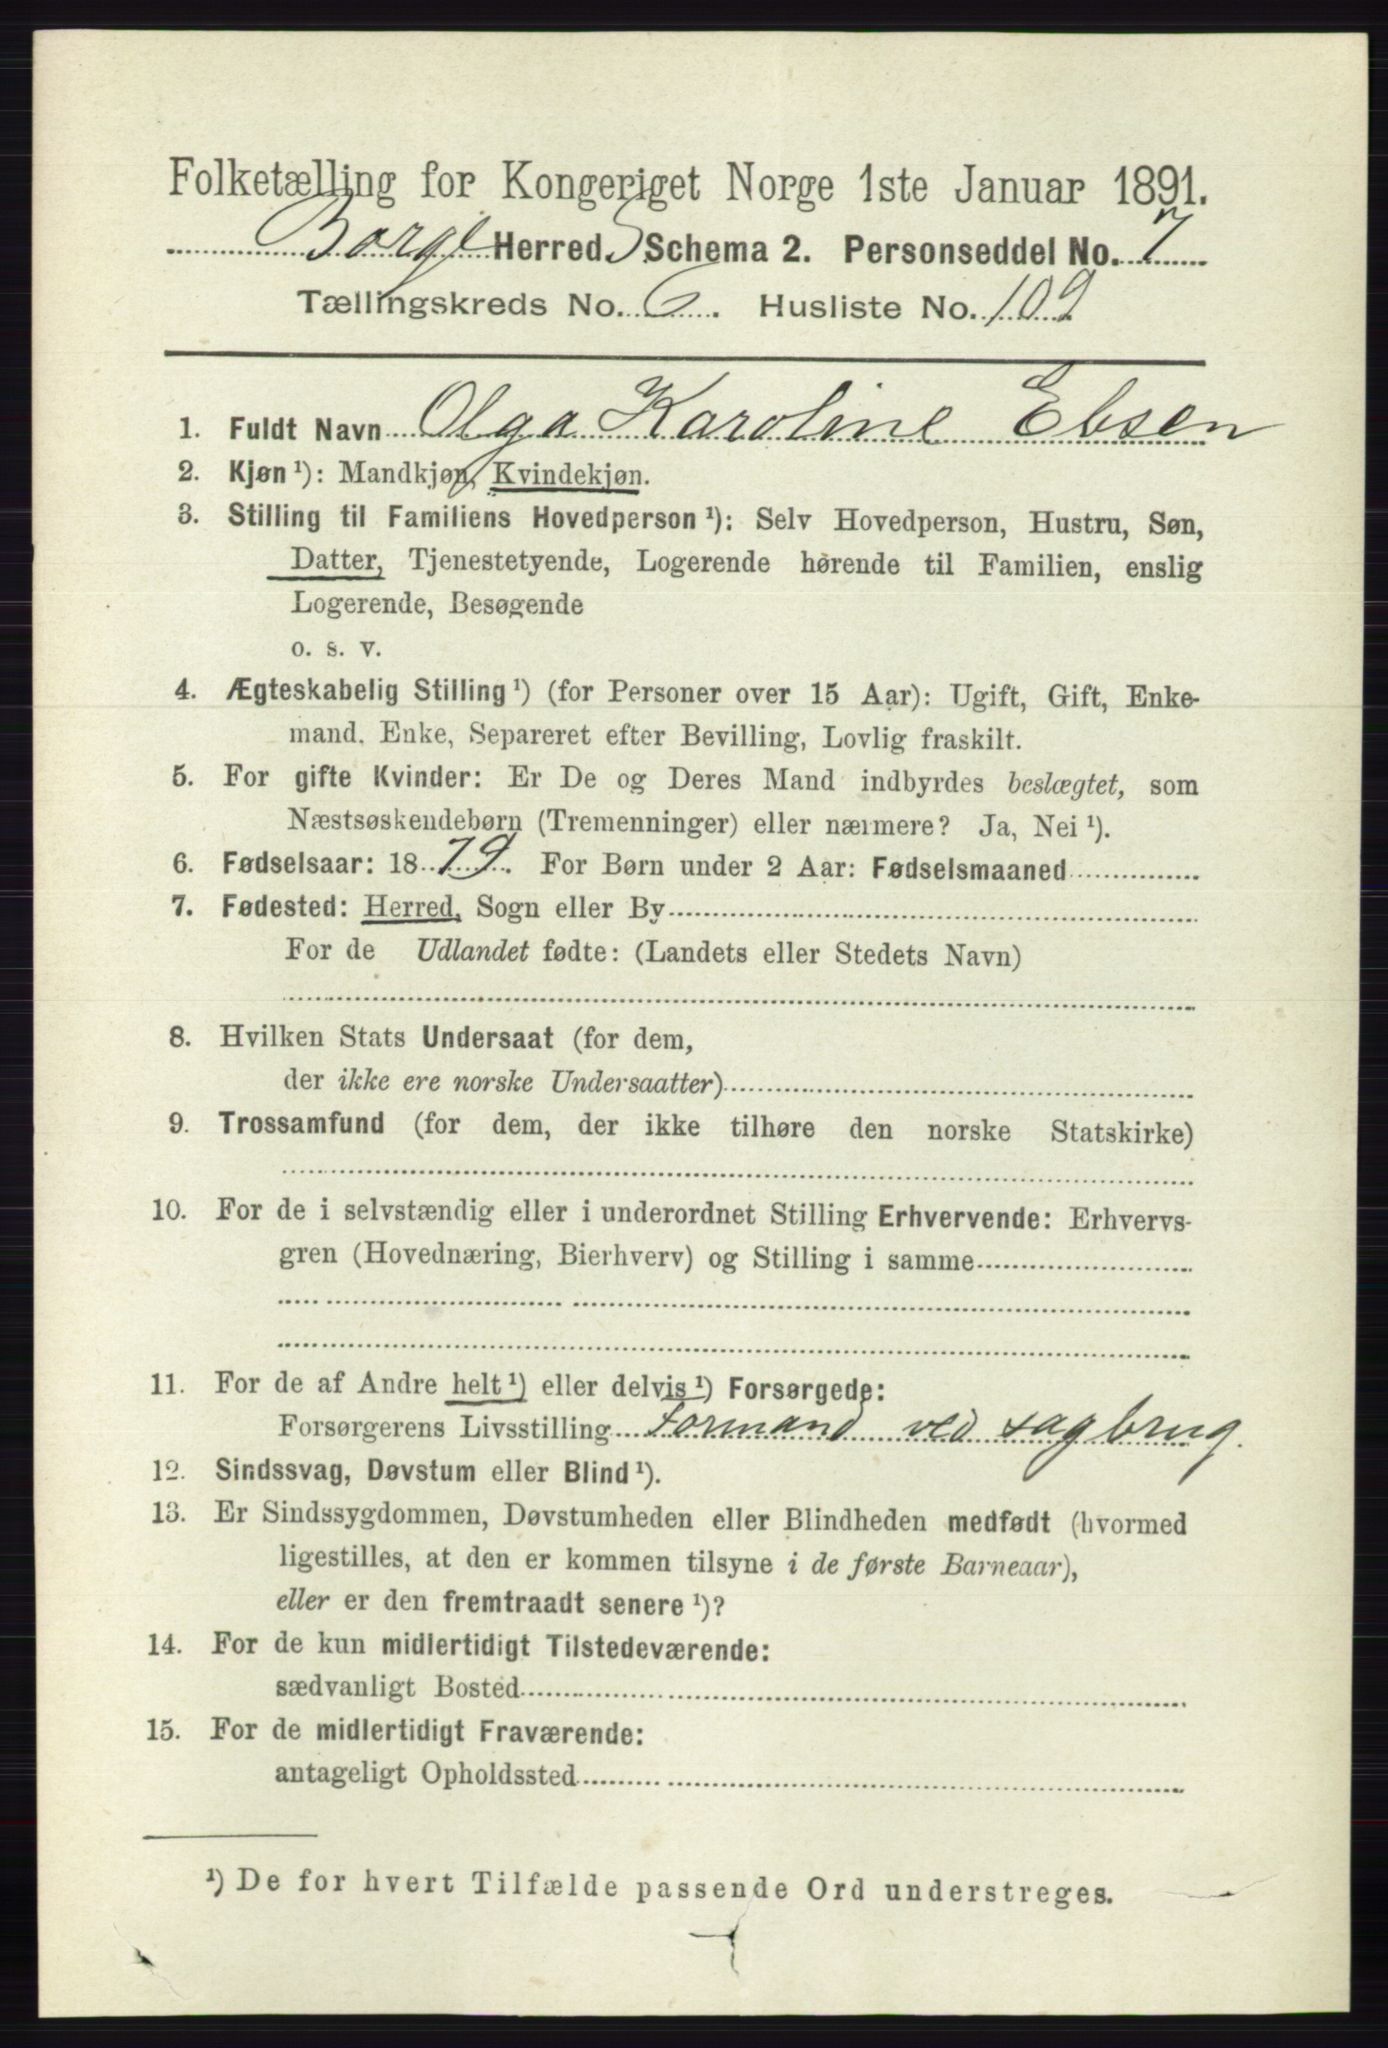 Folketælling for Kongeriget Norge 1ste Januar 1891.
Borge Herred. Schema 2. Personseddel No. 7
Tællingskreds No. 6. Husliste No. 109
1. Fuldt Navn Olga Karoline Ebsen
2. Kjøn ¹): Mandkjøn, Kvindekjøn.
3. Stilling til Familiens Hovedperson ¹): Selv Hovedperson, Hustru, Søn,
Datter, Tjenestetyende, Logerende hørende til Familien, enslig
Logerende, Besøgende
o. s. v.
4. Ægteskabelig Stilling ¹) (for Personer over 15 Aar): Ugift, Gift, Enke-
mand, Enke, Separeret efter Bevilling, Lovlig fraskilt.
5. For gifte Kvinder: Er De og Deres Mand indbyrdes beslægtet, som
Næstsøskendebørn (Tremenninger) eller nærmere? Ja, Nei ¹).
6. Fødselsaar: 1879. For Børn under 2 Aar: Fødselsmaaned
7. Fødested: Herred, Sogn eller By
For de Udlandet fødte: (Landets eller Stedets Navn)
8. Hvilken Stats Undersaat (for dem,
der ikke ere norske Undersaatter)
9. Trossamfund (for dem, der ikke tilhøre den norske Statskirke)
10. For de i selvstændig eller i underordnet Stilling Erhvervende: Erhvervs-
gren (Hovednæring, Bierhverv) og Stilling i samme
11. For de af Andre helt ¹) eller delvis ¹) Forsørgede:
Forsørgerens Livsstilling Formand ved sagbrug.
12. Sindssvag, Døvstum eller Blind ¹).
13. Er Sindssygdommen, Døvstumheden eller Blindheden medfødt (hvormed
ligestilles, at den er kommen tilsyne i de første Barneaar),
eller er den fremtraadt senere ¹)?
14. For de kun midlertidigt Tilstedeværende:
sædvanligt Bosted
15. For de midlertidigt Fraværende:
antageligt Opholdssted
¹) De for hvert Tilfælde passende Ord understreges.